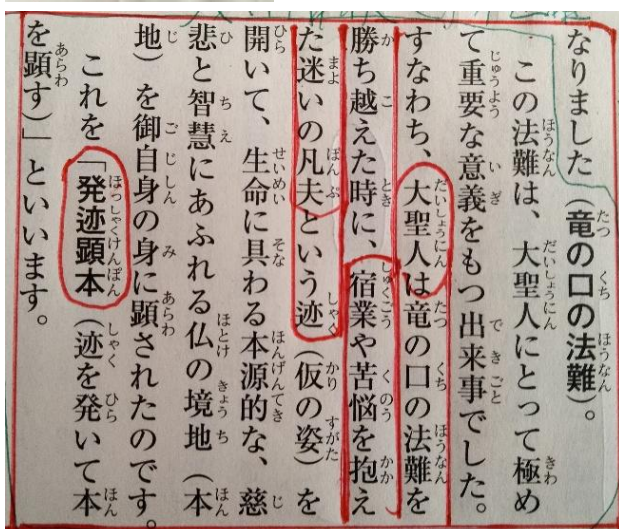 なりました（竜の口の法難）。
この法難は、大聖人にとって極め
て重要な意義をもつ出来事でした。
すなわち、大聖人は竜の口の法難を
勝ち越えた時に、宿業や苦悩を抱え
た迷いの凡夫という迹（仮の姿）を
開いて、生命に具わる本源的な、慈
悲と智慧にあふれる仏の境地（本
地）を御自身の身に顕されたのです。
これを「発迹顕本（迹を発いて本
を顕す）」といいます。